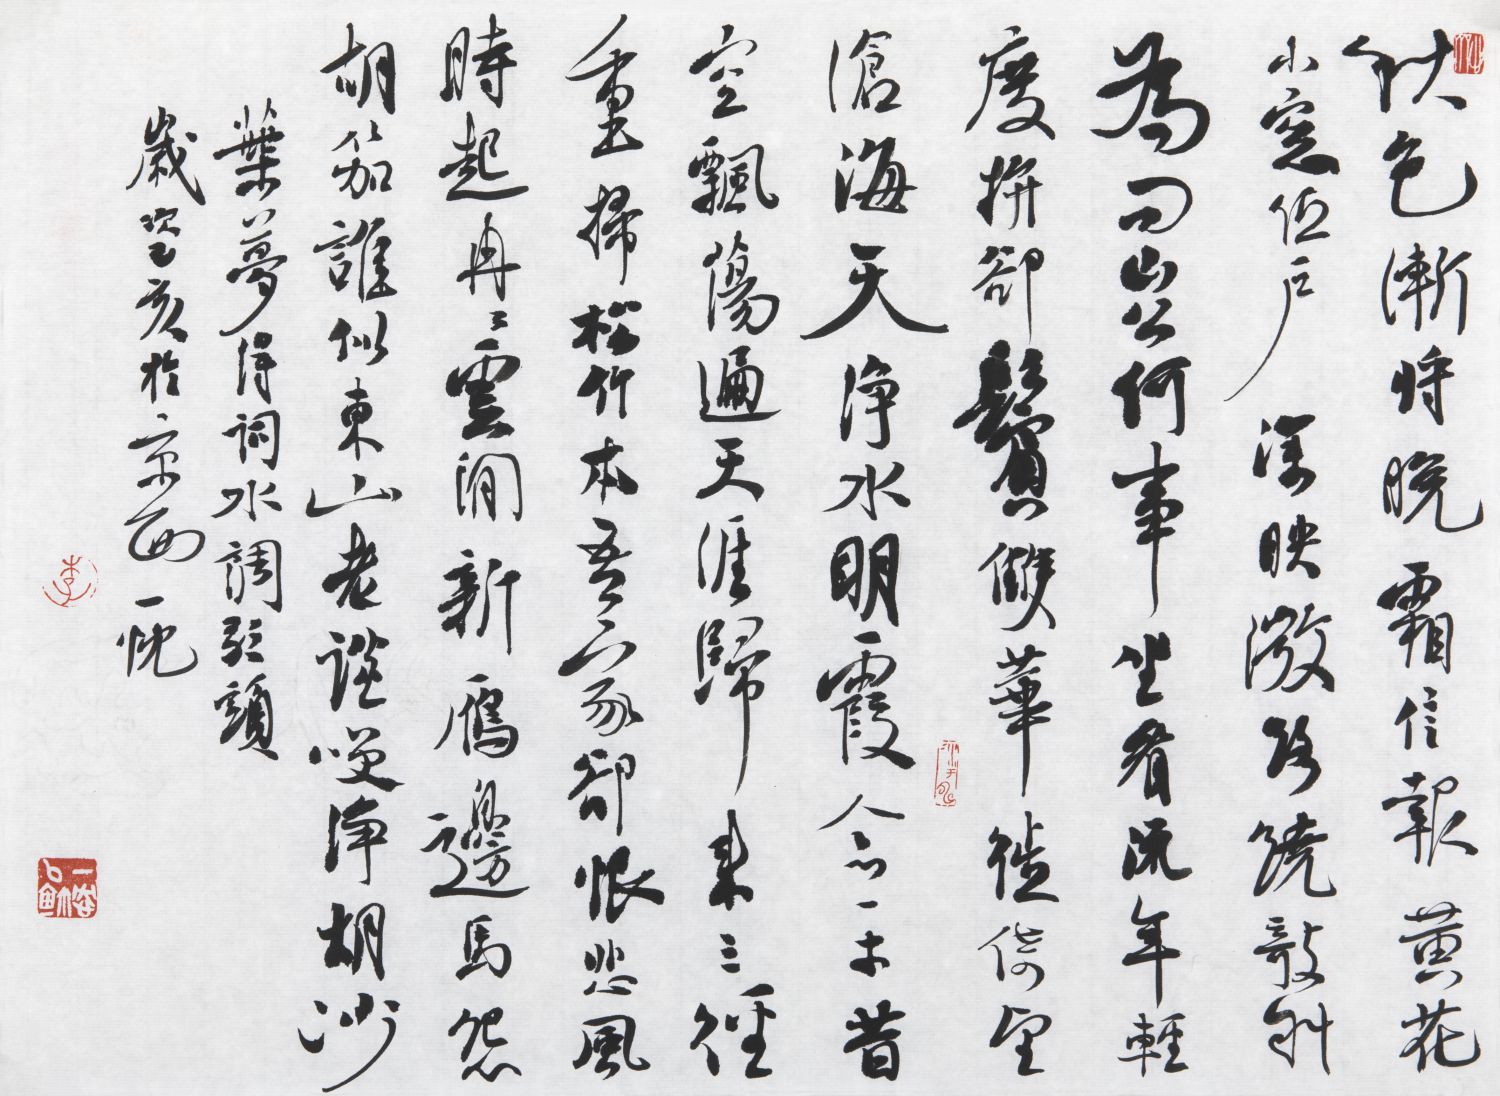 秋色漸將晚霜信報黃花
小窓低戶深映微路繞敧斜
為問山公何事坐看流年輕
度拚卻鬢雙華徙倚望
滄海天淨水明霞念平昔
空飄蕩遍天涯歸來三徑
重掃松竹本吾家卻恨悲風
時起冉冉雲間新雁邊馬怨
胡笳誰似東山老談笑淨胡沙
葉夢得詞水調歌頭
歲次辛亥於京西一忱
李